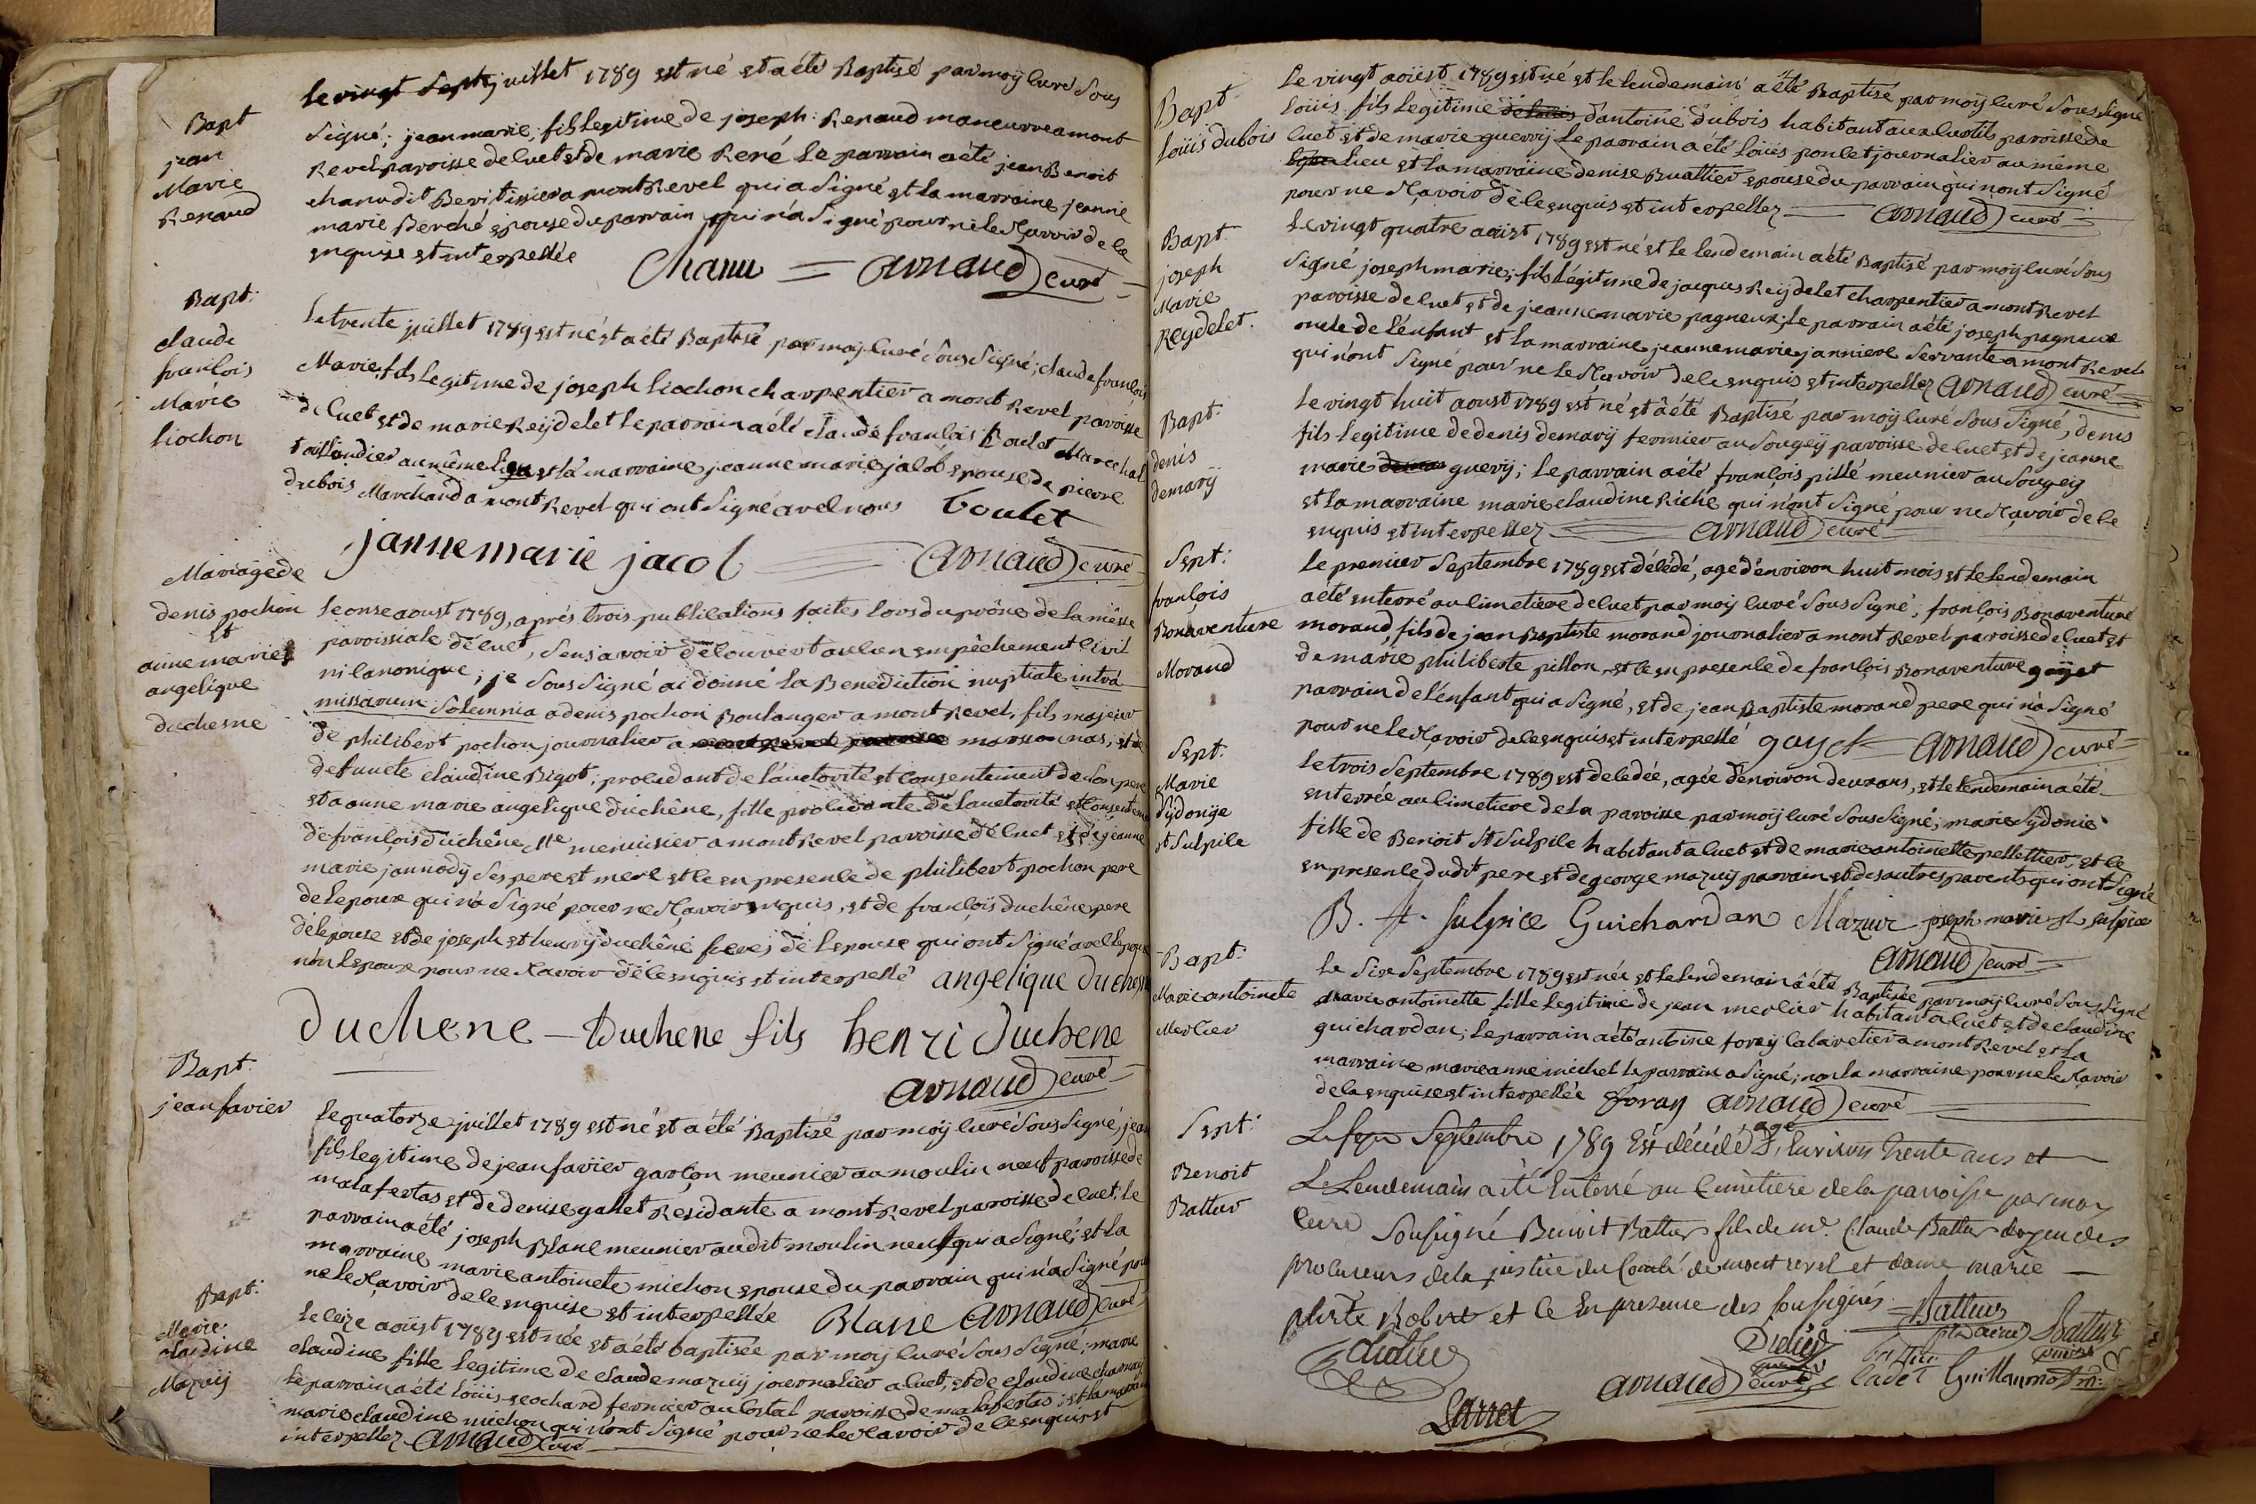 Bapt
jean
Marie
Renaud
le vingt sept juillet 1789 est né et a été Baptisé par moÿ Curé sous
signé; jean marie; fils legitime de joseph Renaud maneuvre a mont
Revel paroisse de Cuet et de marie René le parrain a été jean Benoit
chanu dit Bevi tissier a mont Revel qui a signé et la marraine jeanne
marie Berché epouse du parrain qui n'a signé pour ne le sçavoir de ce
enquise et interpellée Chanu = arnaud curé
Bapt:
claude
françois
Marie
Ciochon
Le trente juillet 1789 est né et a été Baptisé par moÿ Curé sous signé; claude françois
Marie, fils legitime de joseph Ciochon charpentier a mont Revel paroisse
de Cuet et de marie Reÿdelet le parrain a été claude françois Boulet Marechal
taillandier au même lieu et la marraine jeanne marie jacob epouse de pierre
dubois Marchand a mont Revel qui ont signé avec nous boulet
janne marie jacob arnaud curé
Mariage de
denis pochon
et
anne marie
angelique
duchesne
Le onze aoust 1789, aprés trois publications faites lors du prône de la messe
paroissiale de Cuet, sens avoir découvert aucun empêchement civil
ni canonique; je sous signé ai donné la Benediction nuptiale intrá
missarum solemnia a denis pochon Boulanger a mont Revel, fils majeur
de philibert pochon journalier a marsonnas, et de
defuncte claudine Bigot; procedant de l'auctorité et consentement de son pere
et a anne marie angelique duchêne, fille procedante de l'auctorité et consentement
de françois duchêne Me menuisier a mont Revel paroisse de Cuet et de jeanne
marie jannodÿ ses pere et mere et ce en presence de philibert pochon pere
de l'epoux qui n'a signé pour ne sçavoir enquis, et de françois duchêne pere
de l'epouse et de joseph et henrÿ duchêne freres de l'epouse qui ont signé avec l'epouse
non l'epoux pour ne sçavoir de ce enquis et interpellé angelique duchesne
duchene — Duchene fils henri duchene
arnaud curé
Bapt:
jean favier
Le quatorze juillet 1789 est né et a été Baptisé par moÿ Curé sous signé; jean
fils legitime de jean favier garçon meunier au moulin neuf paroisse de
malafretas et de denise gallet Residante a mont Revel paroisse de Cuet; le
parrain a été joseph Blanc meunier audit moulin neuf qui a signé; et la
marraine marie antoinete michon epouse du parrain qui n'a signé pour
ne le sçavoir de ce enquise et interpellée Blanc arnaud curé
Bapt:
Marie
claudine
Mazuÿ
Le seize aoüst 1789 est née et a été baptisée par moÿ Curé sous signé; marie
claudine fille legitime de claude mazuÿ journalier a Cuet, et de claudine charnaÿ
Le parrain a été loüis reochard fermier au Costal paroisse de malafretas; et la marraine
marie claudine michon qui n'ont signé pour ne le sçavoir de ce enquis et
interpellez arnaud curé
Bapt:
Loüis dubois
Le vingt aoüst 1789 est né et le lendemain a été Baptisé par moÿ Curé sous signé
Loüis fils legitime d'antoine dubois habitant aux luotils paroisse de
Cuet et de marie guerrÿ Le parrain a été Loüis poncet journalier au même
lieu et la marraine denise Buattier epouse du parrain qui n'ont signé
pour ne sçavoir de ce enquis et interpellez — arnaud curé
Bapt:
joseph
Marie
Reÿdelet.
Le vingt quatre aoüst 1789 est né et le lendemain a été Baptisé par moÿ Curé sous
signé joseph marie; fils légitime de jacques Reÿdelet charpentier a mont Revel
paroisse de Cuet et de jeanne marie pagneux; Le parrain a été joseph pagneux
oncle de l'enfant et la marraine jeanne marie janniere servante a mont Revel
qui n'ont signé pour ne le sçavoir de ce enquis et interpellez arnaud curé
Bapt:
denis
demarÿ
Le vingt huit aoust 1789 est né et a été Baptisé par moÿ Curé sous signé, denis
fils legitime de denis demarÿ fermier au Sougeÿ paroisse de Cuet et de jeanne
marie guerÿ; Le parrain a été françois pillé meunier au Sougeÿ
et la marraine marie claudine Riche qui n'ont signé pour ne sçavoir de ce
enquis et interpellez arnaud curé
Sept:
françois
Bonaventure
Morand
Le premier Septembre 1789 est décédé, agé d'environ huit mois et le lendemain
a été enterré au cimetiere de Cuet par moÿ Curé sous signé; françois Bonaventure
morand, fils de jean Baptiste morand journalier a mont Revel paroisse de Cuet et
de marie philiberte pillon, et ce en presence de françois Bonaventure gayet
parrain de l'enfant qui a signé, et de jean Baptiste morand pere qui n'a signé
pour ne le sçavoir de ce enquis et interpellé gayet — arnaud curé
Sept:
Marie
Sÿdonie
st Sulpice
Le trois Septembre 1789 est decedée, agée d'environ deux ans, et le lendemain a été
enterrée au cimetiere de la paroisse par moÿ Curé sous signé; marie Sÿdonie
fille de Benoit St Sulpice habitant a Cuet et de marie antoinette pellettier, et ce
en presence dudit pere et de george mazuÿ parrain et des autres parents qui ont signé
B. St. Sulpice Guichardan Mazuir joseph marie st sulpice
arnaud curé
Bapt:
Marie antoinete
Merlier
Le six Septembre 1789 est née et le lendemain a été Baptisée par moÿ Curé sous signé
Marie antoinette fille legitime de jean merlier habitant a Cuet et de claudine
guichardan; Le parrain a été antoine foraÿ cabaretier a mont Revel et la
marraine marie anne michel le parrain a signé; non la marraine pour ne le sçavoir
de ce enquise et interpellée foray arnaud curé
Sept:
Benoit
Battur
Le sept Septembre 1789 Est décédé agé d'Environ trente ans et
Le Lendemain a été Enterré au Cimetiere de la parroisse par moy
Curé Soussigné Benoit Battur fils de mr. Claude Battur doyen des
procureurs de la justice du Comté de mont revel et dame marie
phrte Robert et ce En presence des soussignés = Battur
Didier Didier Battur
Battur cadet Guillaumot
arnaud curé
Larret